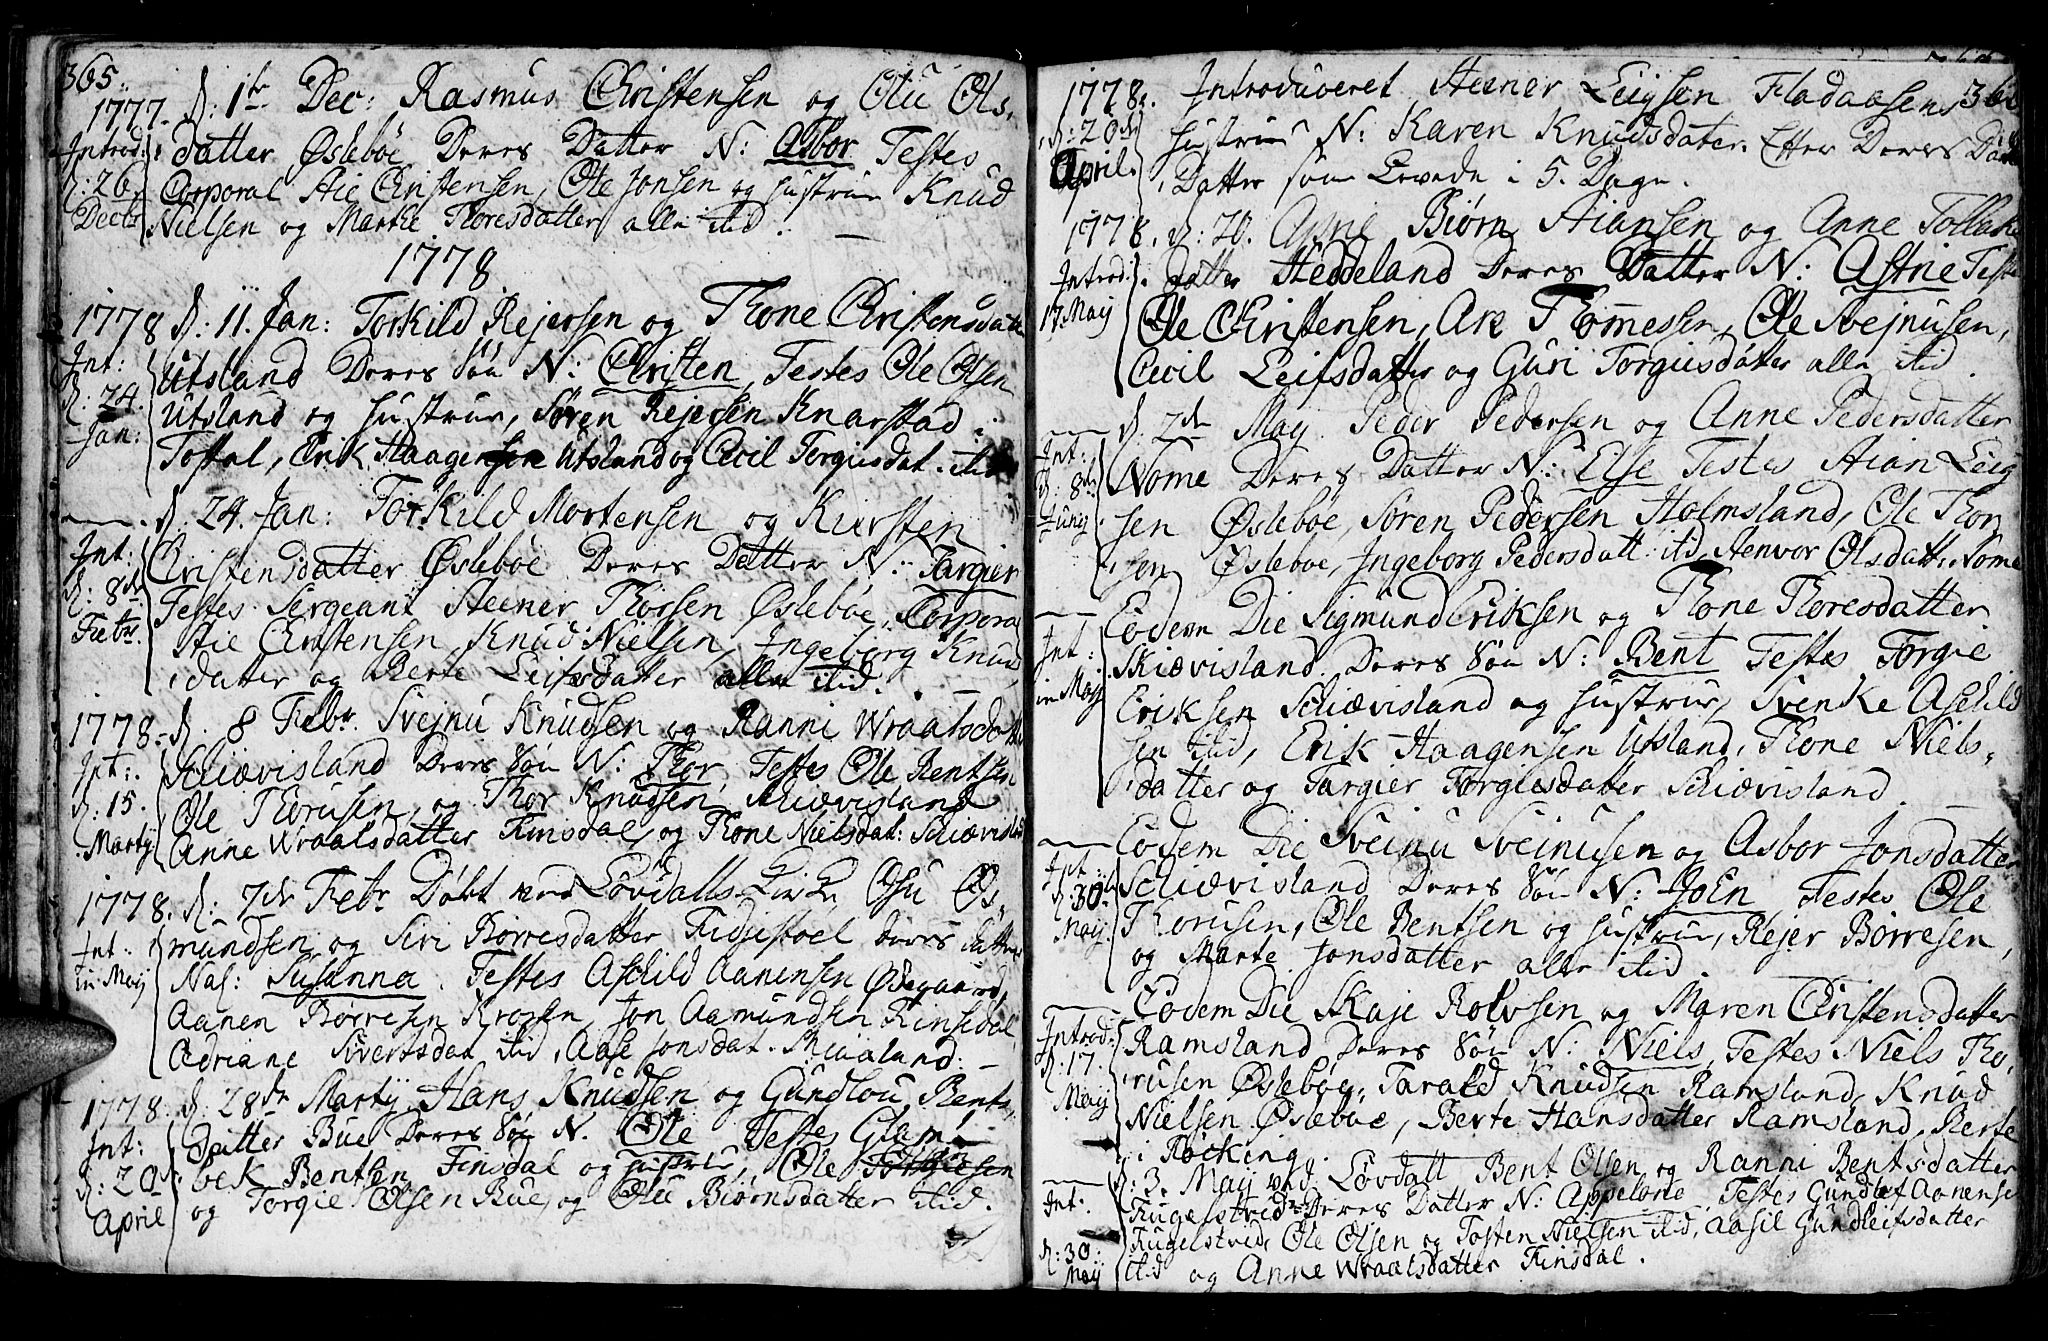 365.
1777. d: 1te Dec: Rasmus Christensen og Olu Ols,
Introd: datter Øslebøe Deres Datter N: Asbor Testes
d: 26 Corporal Aie Christensen, Ole Jonsen og Hustrue Knud
Decbr Nielsen og Marthe Thoresdatter alle itid.
1778
1778 d: 11. Jan: Torkild Rejersen og Thone Christensdatter
Int: Utsland Deres Søn N: Christen, Testes Ole Olsen
d: 24. Utsland og Hustrue, Søren Rejersen Knarstad i
Jan: Toftal, Erik Haagensen Utsland og Cecil Torgiusdat. itid
d. 24. Jan: Torkild Mortensen og Kiersten
Int: Christensdatter Øslebøe Deres Datter N: Targier
d: 8de Testes Sergeant Steener Thorsen Øslebøe, Corporal
Febr. Aie Christensen, Knud Nielsen, Ingeborg Knuds
datter og Berte Leifsdatter alle itid.
1778. d. 8 Febr. Svejnu Knudsen og Ranni Wraalsdatter
Int: Schiævisland Deres Søn N: Thor, Testes Ole Bentsen
d: 15. Ole Thorusen, og Thor Knudsen, Schiævisland
Martij. Anne Wraalsdatter Finsdal, og Thone Nielsdat: Schiævisland
1778. d: 7de Febr Døbt ved Løvdalls Kirke Osu Os,
Int: mundsen og Siri Børresdatter Fidjestøel deres datter
in Maij Naf: Susanna. Testes Aschild Aanensen Ødegaard,
Aanen Børresen Krossen, Jon Aamundsen Finsdal
Adriane Sivertsdat itid, Aase Jonsdat. Skiaaland.
1778 d: 28de Martij Hans Knudsen og Gundlou Bents,
Int: datter Bue Deres Søn N. Ole Testes Glam
d: 20de bek Bentsen Finsdal og Hustrue, Ole Torgiesen
April og Torgie Olsen Bue, og Olu Biørnsdatter itid.
1778. Introduceret Steener Leigsen Fladaasens 366
d: 20de Hustrue N: Karen Knudsdatter. Efter Deres
April. Datter som Levede i 5. Dage.
1778. d: 20. Apr: Biørn Aiansen og Anne Tollaks
Introd: datter Heddeland Deres Datter N: Astrie Testes
17 Maij Ole Christensen, Are Thomessen, Ole Svejnusen,
Cecil Leifsdatter og Guri Torgiusdatter alle itid.
d. 2de May Peder Pedersen og Anne Pedersdatter
Int: Nome Deres Datter N: Else Testes Aian Leig
d: 8de sen Øslebøe, Søren Pedersen Holmsland, Ole Thor
Junij sen Øslebøe, Ingeborg Pedersdatt: itid, Stenvor Olsdatt: Nome
Eodem Die Sigmund Eriksen og Thone Thoresdatter
Int: Skiævisland Deres Søn N: Bent Testes Torgie
in Maij Eriksen Schiævisland og Hustrue, Svenke Aschild
sen itid, Erik Haagensen Utsland, Thone Niels,
datter og Targier Torgiusdatter Schiævisland.
Eodem Die Sveinu Sveinusen og Asbor Jonsdatter
Int Schiævisland Deres Søn N: Joen, Testes Ole
d: 30te Thorusen, Ole Bentsen og Hustrue, Rejer Børresen,
Maij. og Marte Jonsdatter alle itid.
Eodem Die Skaje Rolvsen og Maren Christensdatter
Introd: Ramsland Deres Søn N: Niels, Testes Niels Tho,
d: 17. rusen Øslebøe, Tarald Knudsen Ramsland, Knud
Maij Nielsen Øslebøe, Berte Hansdatter Ramsland, Berte
i Røcking.
d: 3. Maij ved Løvdall Bent Olsen og Ranni Bentsdatter
Int: Fugelstvid Deres Datter N: Appelone, Testes Gundlef Aanensen
Fugelstvid, Ole Olsen og Tosten Nielsen itid, Aasil Gundleifsdatter
d: 30. Maij itid og Anne Wraalsdatter Finsdal.